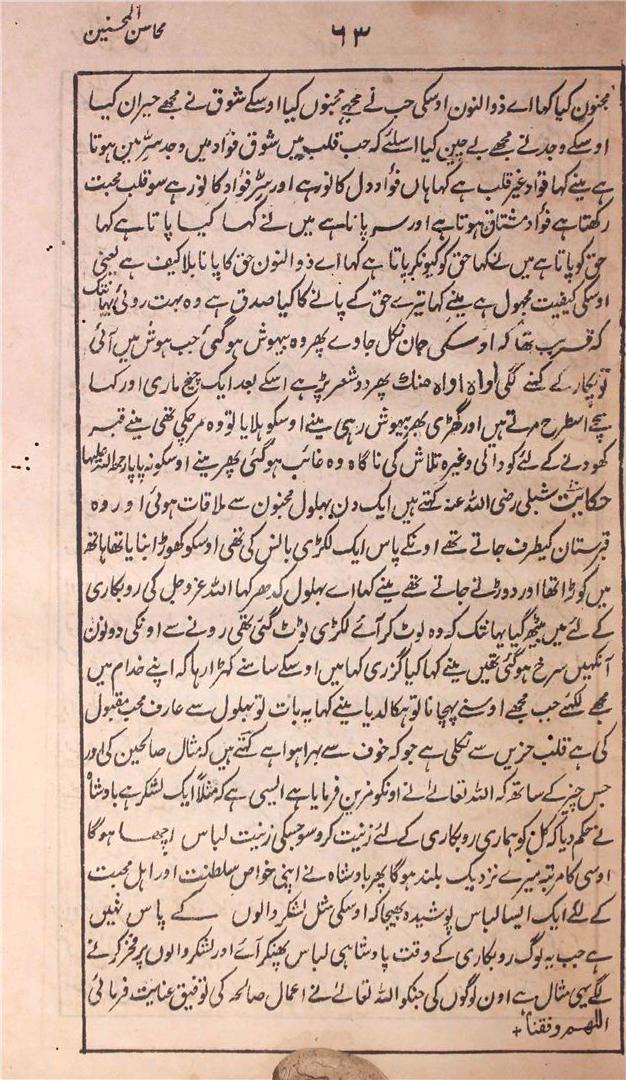 محاسن المحسنین
۶۳
مجنون کیا کہا اے ذوالنون اوسکی حب نے مجھے مجنون کیا اوسکے شوق نے مجھے حیران کیا
اوسکے وجد نے مجھے بے چین کیا اسلئے کہ حب قلب میں شوق فواد میں وجد سِرّ مین ہوتا
ہے مینے کہا فواد غیر قلب ہے کہا ہاں فواد دل کا نور ہے اور سِرّ فواد کا نور ہے سو قلب محبت
رکھتا ہے فواد مشتاق ہوتا ہے اور سر پاتا ہے میں نے کہا کیا پاتا ہے کہا
حق کو پاتا ہے میں نے کہا حق کو کیونکر پاتا ہے کہا اے ذوالنون حق کا پانا بلا کیف ہے یعنی
اوسکی کیفیت مجہول ہے مینے کہا تیرے حق کے پانے کا کیا صدق ہے وہ بہت روئی یہانتک
کہ قریب تھا کہ اوسکی جان نکل جاوے پھر وہ بیہوش ہوگئی جب ہوش میں آئی
تو پکار کے کہنے لگی اواہ اواہ منک پھر دو شعر پڑہے اسکے بعد ایک چیخ ماری اور کہا
سچے اسطرح مرتے ہیں اور گھڑی بھر بیہوش رہی مینے اوسکو ہلایا تو وہ مرچکی تھی مینے قبر
کھودنے کے لئے کودالی وغیرہ تلاش کی ناگاہ وہ غائب ہوگئی پھر مینے اوسکو نہ پایا رحمۃ اللہ علیہا
حکایت شبلی رضی اللہ عنہ کہتے ہیں ایک دن بہلول مجنون سے ملاقات ہوئی اور وہ
قبرستان کیطرف جاتے تھے اونکے پاس ایک لکڑی بانس کی تھی اوسکو گھوڑا بنایا تھا ہاتھ
میں کوڑا تھا اور دوڑتے جاتے تھے مینے کہا اے بہلول کدھر کہا اللہ عزوجل کی روبکاری
کے لئے میں بیٹھ گیا یہانتک کہ وہ لوٹ کر آئے لکڑی ٹوٹ گئی تھی رونے سے اونکی دونوں
آنکہیں سرخ ہوگئی تھیں مینے کہا کیا گزری کہا میں اوسکے سامنے کہڑا رہا کہ اپنے خدام میں
مجھے لکہے جب مجھے اوسنے پہچانا تو ہکالدیا مینے کہا یہ بات تو بہلول سے عارف محب مقبول
کی ہے قلب حزیں سے نکلی ہے جو کہ خوف سے بہرا ہوا ہے کہتے ہیں کہ مثال صالحین کی اور
جس چیز کے ساتھ کہ اللہ تعالے نے اونکو مزین فرمایا ہے ایسی ہے کہ مثلاً ایک لشکر ہے بادشاہ
نے حکم دیا کہ کل کو ہماری روبکاری کے لئے زینت کرو سو جسکی زینت لباس اچھا ہوگا
اوسی کا مرتبہ میرے نزدیک بلند ہوگا پھر بادشاہ نے اپنی خواص سلطنت اور اہل محبت
کے لئے ایک ایسا لباس پوشیدہ بھیجا کہ اوسکی مثل لشکر والوں کے پاس نہیں
ہے جب یہ لوگ روبکاری کے وقت بادشاہی لباس پہنکر آئے اور لشکر والوں پر فخر کرنے
لگے یہی مثال ہے اون لوگوں کی جنکو اللہ تعالے نے اعمال صالحہ کی توفیق عنایت فرمائی
اللہم وفقنا +